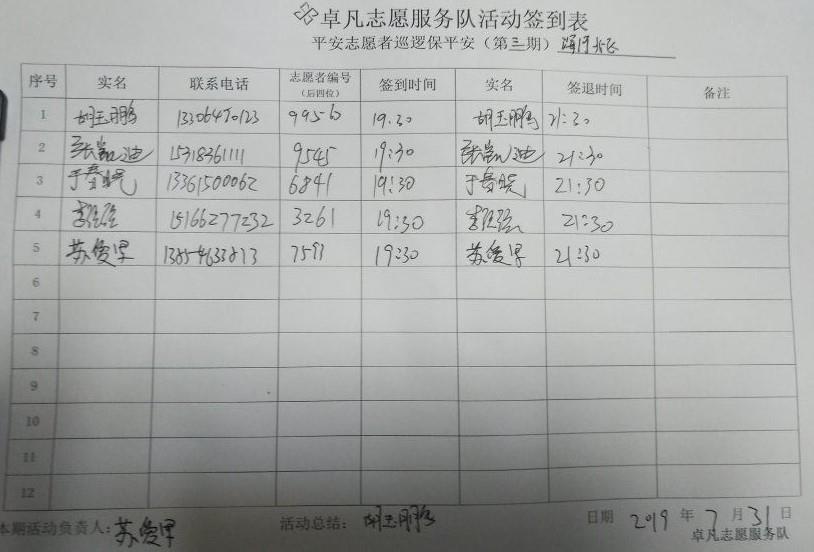 卓凡志愿服务队活动签到表
平安志愿者巡逻保平安（第三期）
序号 实名 联系电话 志愿者编号（后四位） 签到时间 实名 签退时间 备注
1 胡玉鹏 13306470123 9956 19:30 胡玉鹏 21:30
2 张凯迪 15318361111 9545 19:30 张凯迪 21:30
3 于春晓 13361500062 6841 19:30 于春晓 21:30
4 李强强 15166277232 3261 19:30 李强强 21:30
5 苏俊杲 13854633813 7591 19:30 苏俊杲 21:30
6
7
8
9
10
11
12
本期活动负责人：苏俊杲 活动总结：胡玉鹏 日期 2019 年 7 月 31 日
卓凡志愿服务队